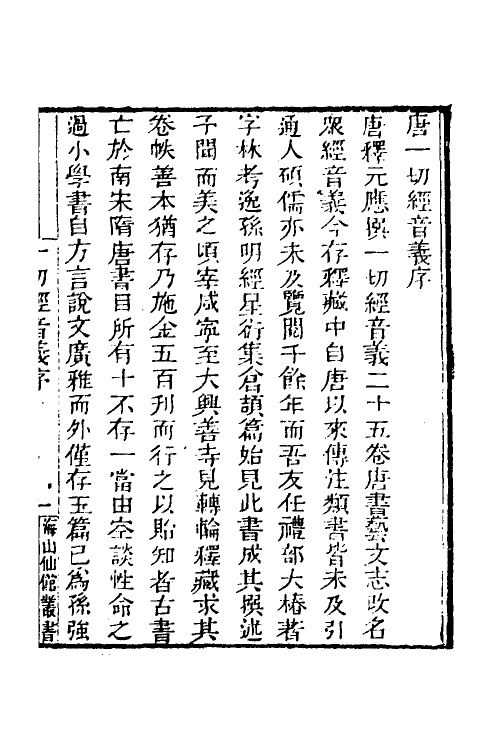 唐一切經音義序
唐釋元應撰一切經音義二十五卷唐書藝文志改名
眾經音義今存釋藏中自唐以來傳注類書皆未及引
通人碩儒亦未及覽閱千餘年而吾友任禮部大椿著
字林考逸孫明經星衍集倉頡篇始見此書成其撰述
予聞而美之頃宰咸寧至大興善寺見轉輪釋藏求其
卷帙善本猶存乃施金五百刊而行之以貽知者古書
亡於南宋隋唐書目所有十不存一當由空談性命之
過小學書自方言說文廣雅而外僅存玉篇已為孫強
一切經音義序 一 海山仙館叢書